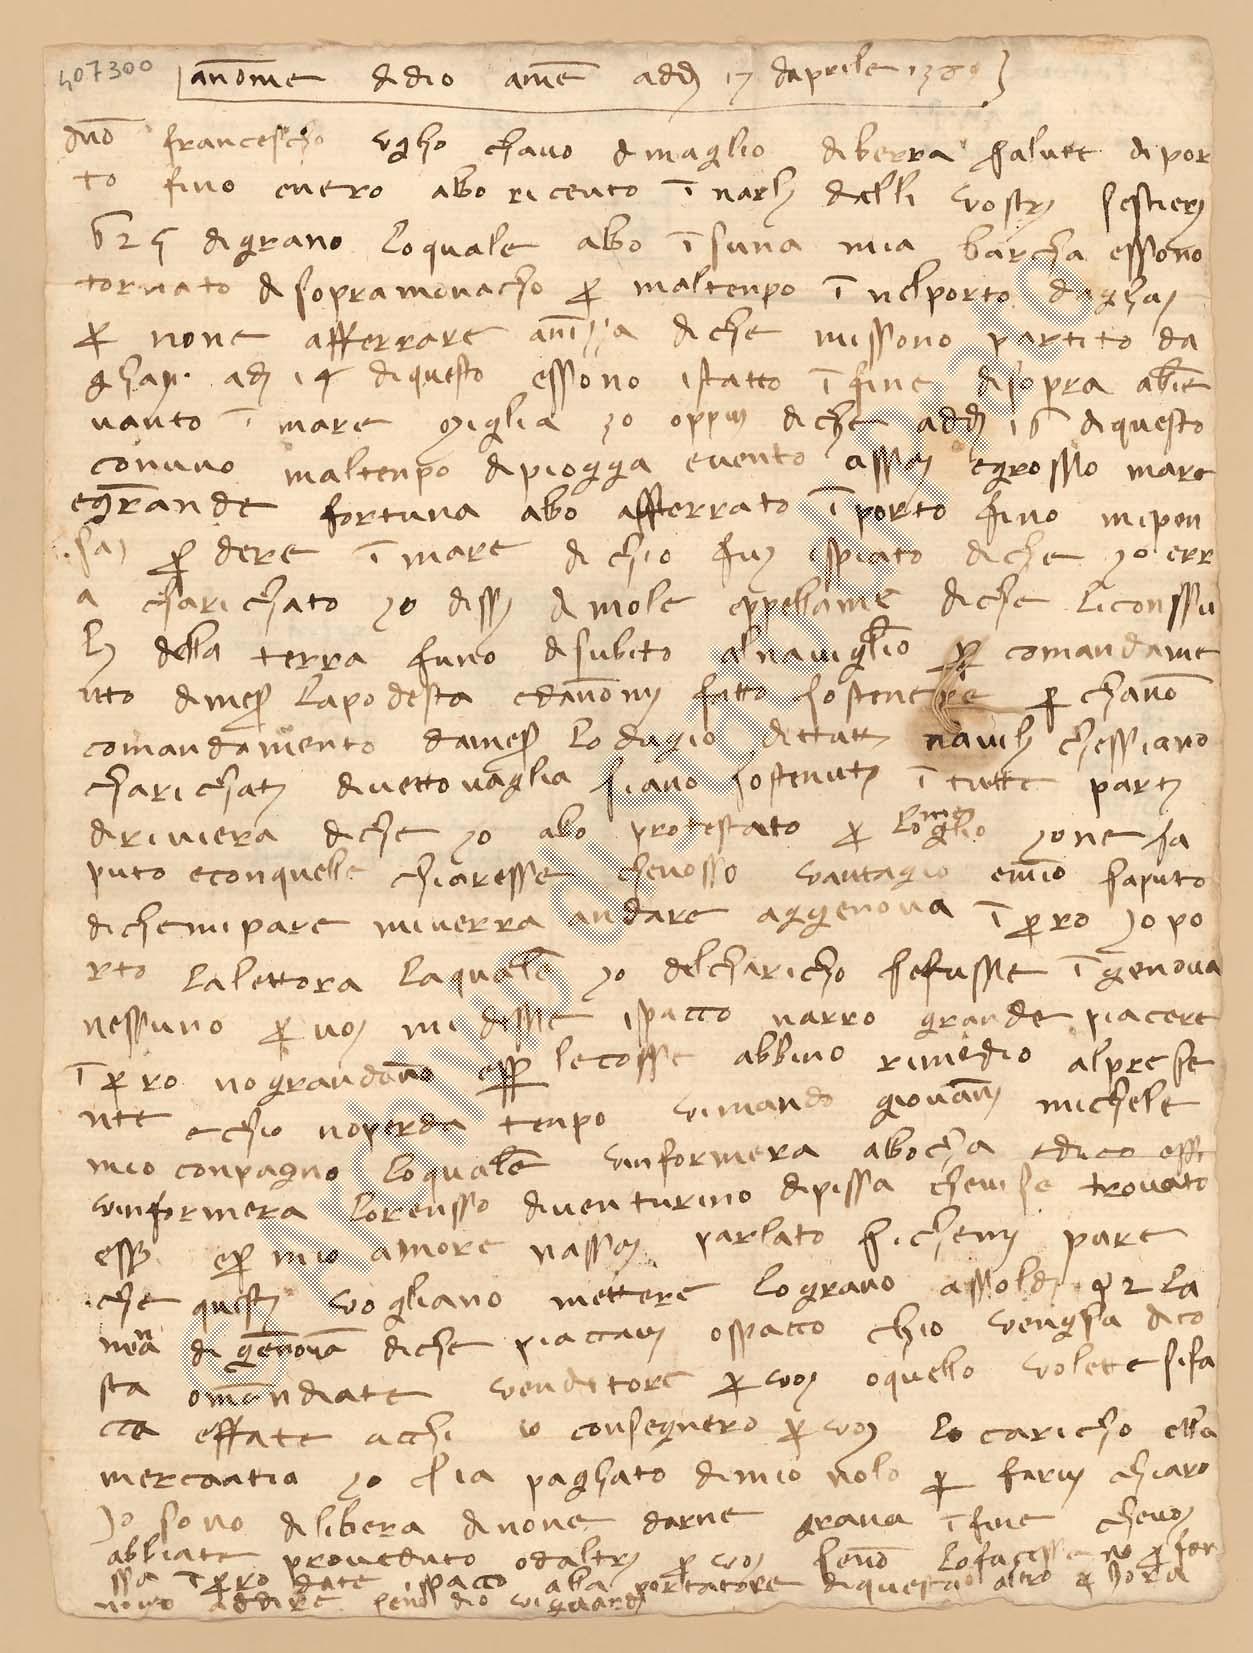 407300
anome di dio ame add 17 daprile 1389
dno francescho vgho chavo dmaglio diberra salute dipor
to fino chero abo riceuto ī narli dalli vostri sestieri
di grano loquale abo ī suna mia barcha essono
tornato disopramonacho p maltenpo ī nelporto dagha
p none afferrare diche missono partito da
ghay. adi 14 diquesto essono istatto ī fine disopra
nanto ī mare miglia 30 oppiu diche addi 16 diquesto
conuno maltenpo dipiogga euento assai egrosso mare
egrande fortuna abo afferrato ī porto fino mipen
sai p dere ī mare di chio fuy ispiato diche yo err
a charichato yo dissi dimole eppellame diche liconssu
li della terra funo disubito alnauigħo p comandame
nto dimes lapodesta fatto sostenere p chano
comandamento dames lo dugio dittutti navili chessiano
charichati diuettouaglia siano sostenuti ī tutte parti
diriuiera diche yo abo protestato p lo meglio yone sa
puto econquelle chiaresse chenosso vantagio saputo
dichemipare miuerra andare aggenova ī pro yo po
rto lalettora laquale yo delcharicho sefusse ī genoua
nessuno p uoi mi desse ispacco narro grande piacere
ī pro nograndano lecosse abbino rimedio alprese
nte echio noperda tenpo vimando giouani michele
mio conpagno loquale vinformera abocha edico
vinformera lorensso diuenturino dipissa cheuise trovato
essi ep mio amore nassai parlato sichemi pare
che questi vogliano mettere lograno assoldi 42 la
mina di genova diche piacciaui ospacco chio vengha dico
sta omandiate venditore p voi oquello volete sifa
ccia effate acchi io conseguero p voi lo caricho ella
mercantia yo sia paghato dimio nolo p farui chiaro
Jo sono dilibera dinone darne grana ī fine cheuoi
abbiate proueduto odaltri p voi seno lofacesse no p for
ssa ī pro date ispacco alla portatore diquesta altro p hora
nono addire dio viguardi